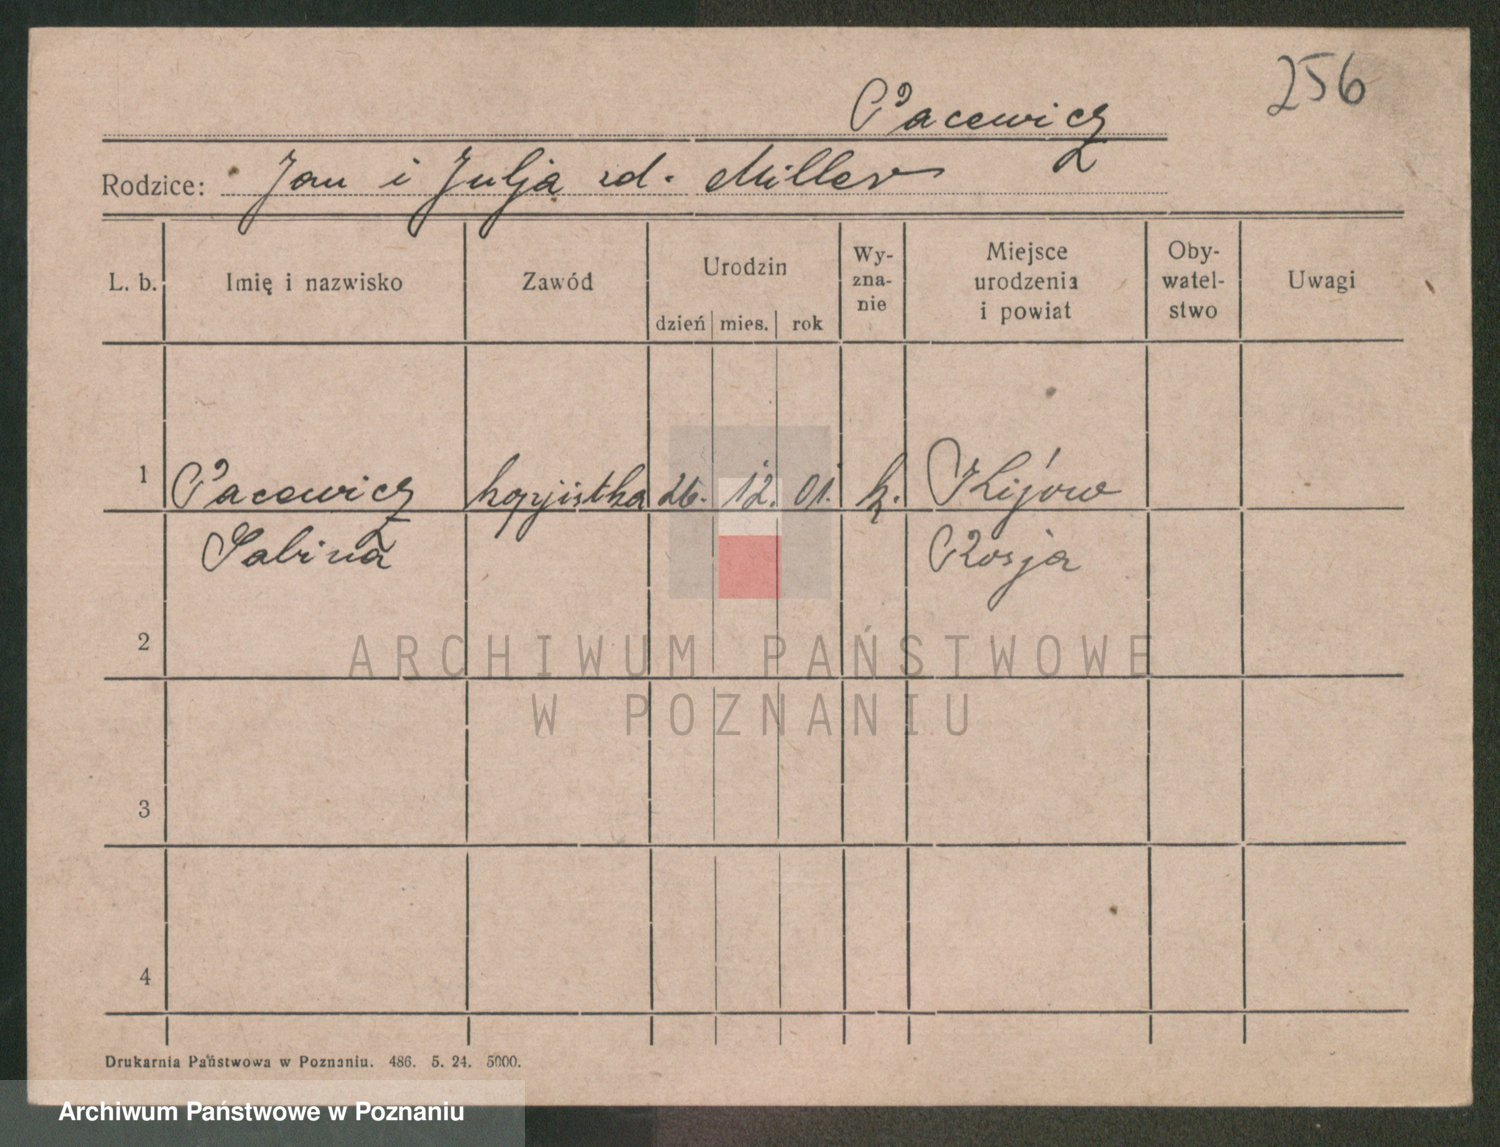 256
Pacewicz
Rodzice: Jan i Julja zd. Miller
L. b. Imię i nazwisko Zawód Urodzin dzień mies. rok Wy-zna-nie Miejsce urodzenia i powiat Oby-watel-stwo Uwagi
1 Pacewicz kopjistka 26. 12. 01. k. Kijów
Sabina Rosja
2
ARCHIWUM PAŃSTWOWE
W POZNANIU
3
4
Drukarnia Państwowa w Poznaniu. 486. 5. 24. 5000.
Archiwum Państwowe w Poznaniu